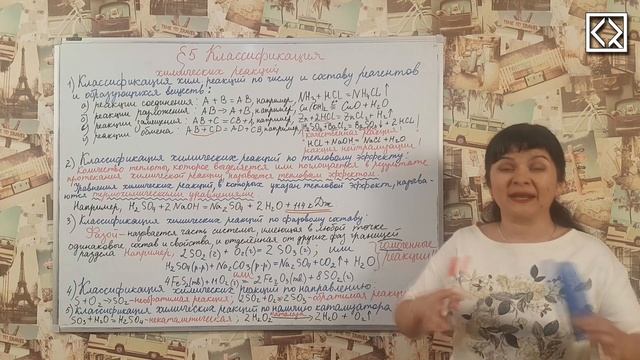 §5 Классификация
химических реакций
1) Классификация хим. реакций по числу и составу реагентов
и образующихся веществ:
а) реакции соединения: A + B = AB, например, NH₃ + HCl = NH₄Cl
б) реакции разложения: AB = A + B, например, CuO + H₂O
в) реакции замещения: AB + C = CB + A, например, Zn + 2HCl = ZnCl₂ + H₂↑
г) реакции обмена: AB + CD = AD + CB, например, + 2HCl
качественная реакция
HCl + NaOH = NaCl + H₂O
реакция нейтрализации
2) Классификация химических реакций по тепловому эффекту:
количество теплоты, которое выделяется или поглощается в результате
протекания химической реакции, называется тепловым эффектом.
Уравнения химических реакций, в которых указан тепловой эффект, называ-
ются термохимическими уравнениями
Например, H₂SO₄ + 2NaOH = Na₂SO₄ + 2H₂O + Дж
3) Классификация химических реакций по фазовому составу:
Фазой - называется часть системы, имеющая в любой точке
одинаковое состав и свойства, и отделенная от других фаз границей
раздела. Например, 2SO₂(г) + O₂(г) = 2SO₃(г); или гомогенные
H₂SO₄(р-р) + Na₂CO₃(р-р) = Na₂SO₄ + CO₂↑ + H₂O реакции
или
= 2Fe₂O₃(тв) + 8SO₂(г)
4) Классификация химических реакций по направлению:
S + O₂ → SO₂ - необратимая реакция; 2SO₂ + O₂ = 2SO₃ - обратимая
5) Классификация химических реакций по наличию катализатора
SO₃ + H₂O = H₂SO₄ - некаталитическая; 2H₂O₂ 2H₂O + O₂↑